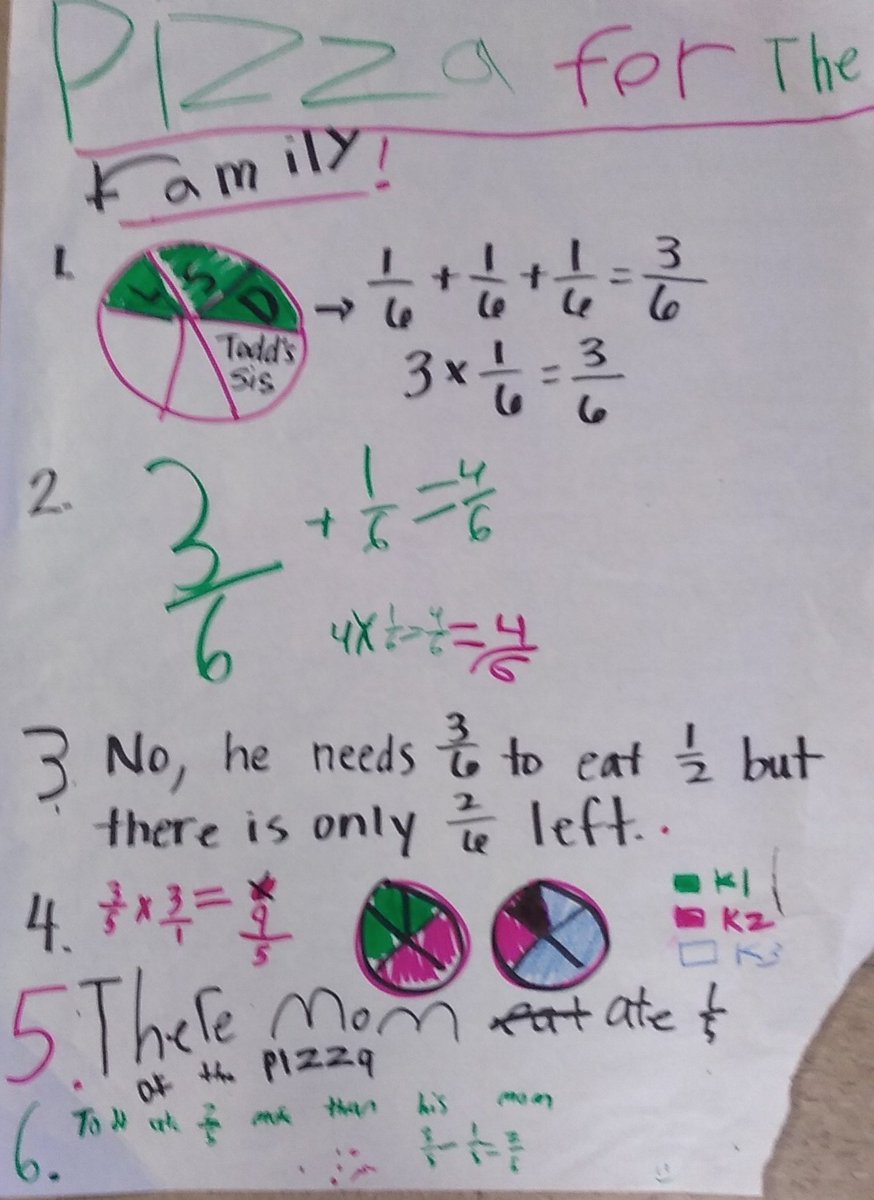 PIZZa for The
Family!
1. L S D → 1/6 + 1/6 + 1/6 = 3/6
Todd's
sis
3 x 1/6 = 3/6
2. 3/6 + 1/6 = 4/6
4 x 1/6 = 4/6 = 4/6
3. No, he needs 3/6 to eat 1/2 but
there is only 2/6 left.
4. 3/5 x 3/1 = 9/5
K1
K2
K3
5. There Mom eat ate 1/5
of the PIZZa
6. Todd ate 2/5 more than his mom
3/5 - 1/5 = 2/5